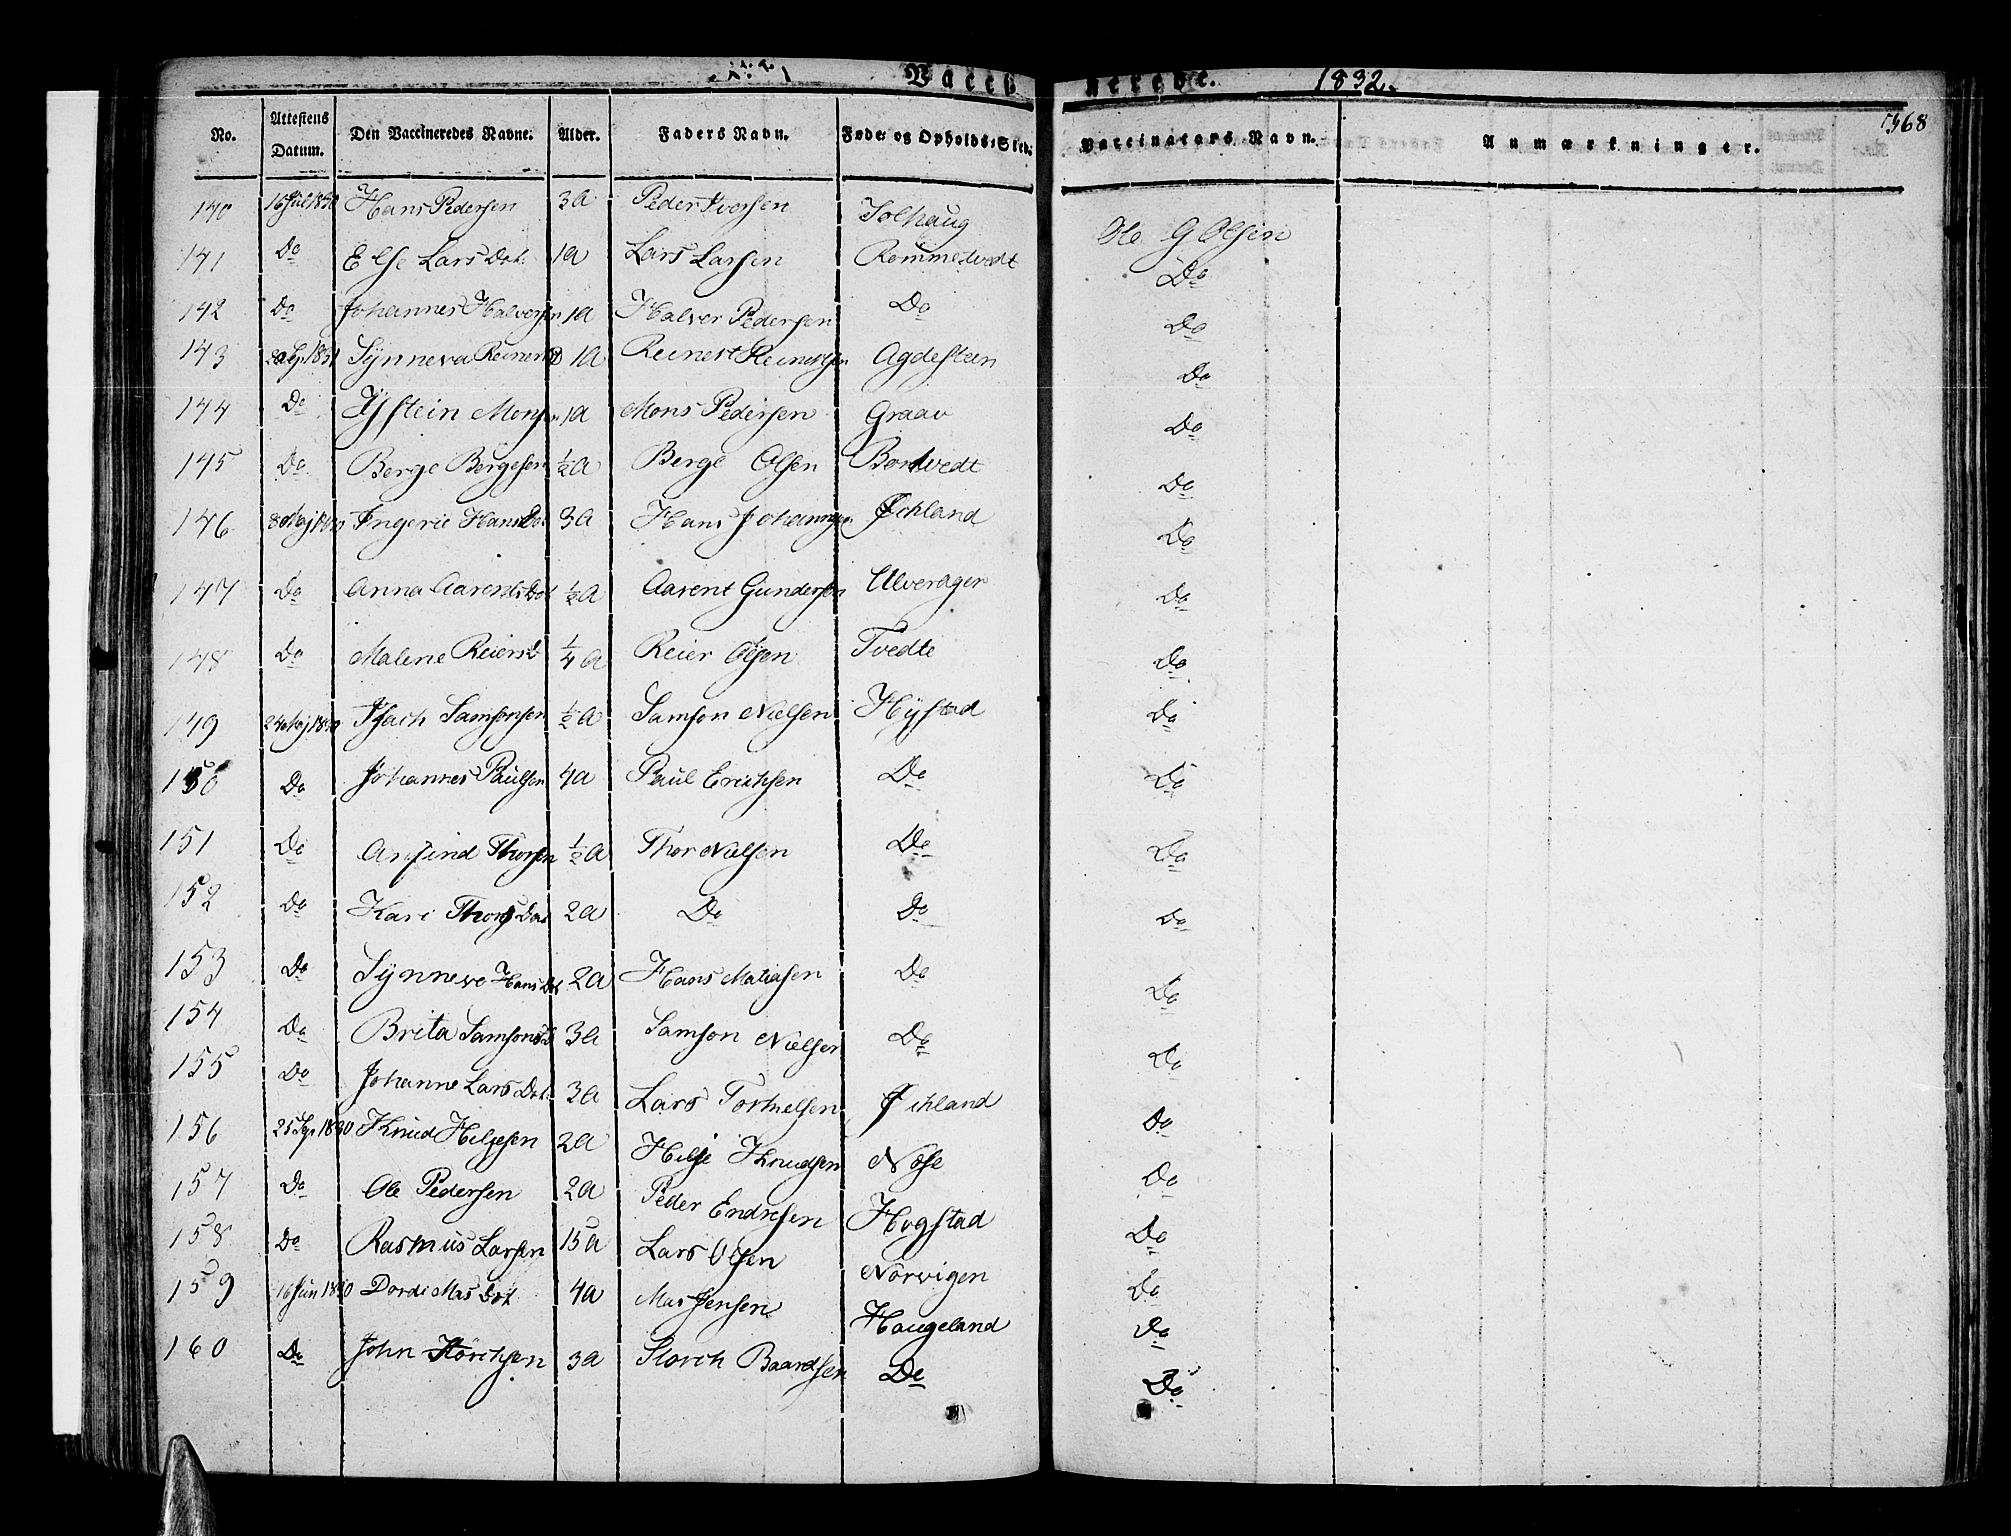 Vaccinerede. 1832.
368
No. Attestens Datum. Den Vaccineredes Navne. Alder. Faders Navn. Føde- og Opholds-Sted. Vaccinators Navn. Anmærkninger.
140 16 Jul 1830 Hans Pedersen 3a Peder Iversen Solhaug Ole G Olsen
141 Do Else Lars Dot. 1a Lars Larsen Rommetvedt Do
142 Do Johannes Halversen 1a Halver Pedersen Do Do
143 Sep 1831 Synneva Reinert D 1a Reinert Reinertsen Agdestein Do
144 Do Ystein Monsen 1a Mons Pedersen Graav Do
145 Do Berge Bergesen ½a Berge Olsen Bortvedt Do
146 8 Maj Ingerie Hans Dot 3a Hans Johannesen Økland Do
147 Do Anna Aarents Dot ½a Aarent Gundersen Ulverager Do
148 Do Malene Reiers D ¼a Reier Olsen Tvedte Do
149 24 Maj 1830 Isach Samsonsen ½a Samson Nielsen Hystad Do
150 Do Johannes Paulsen 4a Paul Erichsen Do Do
151 Do Anfind Thorsen ½a Thor Nielsen Do Do
152 Do Kari Thors Dot 2a Do Do Do
153 Do Synneve Hans Dot 2a Hans Matiasen Do Do
154 Do Brita Samsons D 3a Samson Nielsen Do Do
155 Do Johanne Lars Dot. 3a Lars Tormelsen Økland Do
156 25 Sep 1830 Knud Heljesen 2a Helje Knudsen Nese Do
157 Do Ole Pedersen 2a Peder Endresen Hogstad Do
158 Do Rasmus Larsen 15a Lars Olsen Norvigen Do
159 16 Jun 1830 Dordi Mas Dot 4a Mas Jensen Haugeland Do
160 Do John Storchsen 3a Storch Baardsen Do Do